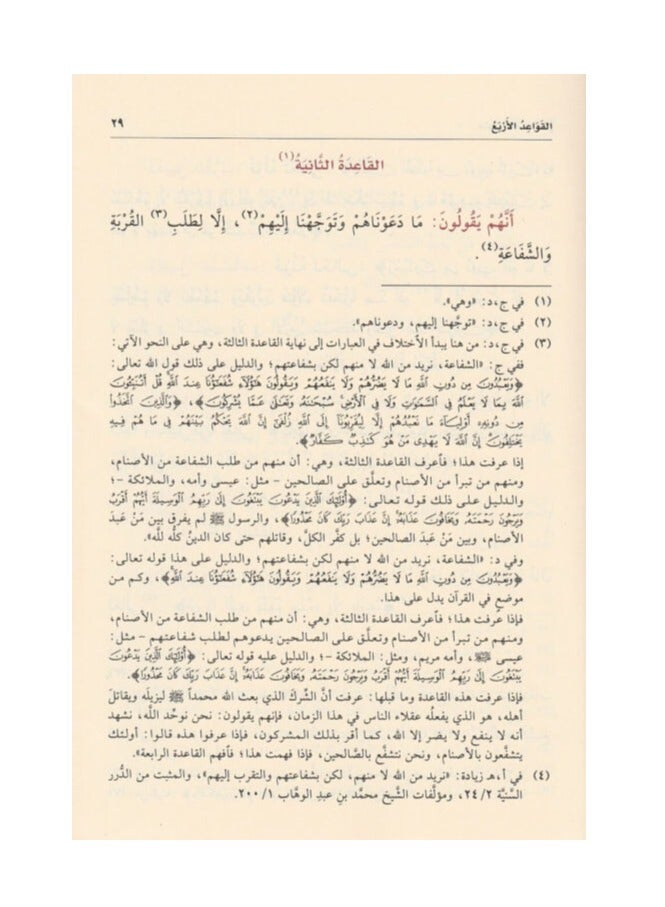 القَوَاعِدُ الأَرْبَعُ ٢٩
القَاعِدَةُ الثَّانِيَةُ(١)
أَنَّهُمْ يَقُولُونَ: مَا دَعَوْنَاهُمْ وَتَوَجَّهْنَا إِلَيْهِمْ(٢)، إِلَّا لِطَلَبِ(٣) القُرْبَةِ
وَالشَّفَاعَةِ(٤).
(١) في ج،د: «وهي».
(٢) في ج،د: «توجَّهنا إليهم، ودعوناهم».
(٣) في ج،د: من هنا يبدأ الاختلاف في العبارات إلى نهاية القاعدة الثالثة، وهي على النحو الآتي:
ففي ج: «الشفاعة، نريد من الله لا منهم لكن بشفاعتهم؛ والدليل على ذلك قول الله تعالى:
﴿وَيَعْبُدُونَ مِن دُونِ اللَّهِ مَا لَا يَضُرُّهُمْ وَلَا يَنفَعُهُمْ وَيَقُولُونَ هَٰؤُلَاءِ شُفَعَاؤُنَا عِندَ اللَّهِ قُلْ أَتُنَبِّئُونَ
اللَّهَ بِمَا لَا يَعْلَمُ فِي السَّمَاوَاتِ وَلَا فِي الْأَرْضِ سُبْحَانَهُ وَتَعَالَى عَمَّا يُشْرِكُونَ﴾، ﴿وَالَّذِينَ اتَّخَذُوا
مِن دُونِهِ أَوْلِيَاءَ مَا نَعْبُدُهُمْ إِلَّا لِيُقَرِّبُونَا إِلَى اللَّهِ زُلْفَى إِنَّ اللَّهَ يَحْكُمُ بَيْنَهُمْ فِي مَا هُمْ فِيهِ
يَخْتَلِفُونَ إِنَّ اللَّهَ لَا يَهْدِي مَنْ هُوَ كَاذِبٌ كَفَّارٌ﴾.
إذا عرفت هذا؛ فاعرف القاعدة الثالثة، وهي: أن منهم من طلب الشفاعة من الأصنام،
ومنهم من تبرأ من الأصنام وتعلَّق على الصالحين - مثل: عيسى وأمه، والملائكة -؛
والدليل على ذلك قوله تعالى: ﴿أُولَٰئِكَ الَّذِينَ يَدْعُونَ يَبْتَغُونَ إِلَى رَبِّهِمُ الْوَسِيلَةَ أَيُّهُمْ أَقْرَبُ
وَيَرْجُونَ رَحْمَتَهُ وَيَخَافُونَ عَذَابَهُ إِنَّ عَذَابَ رَبِّكَ كَانَ مَحْذُورًا﴾، والرسول ﷺ لم يفرق بين مَنْ عَبَدَ
الأصنام، وبين مَنْ عَبَدَ الصالحين؛ بل كفَّر الكلَّ، وقاتلهم حتى كان الدينُ كلُّه لله».
وفي د: «الشفاعة، نريد من الله لا منهم لكن بشفاعتهم؛ والدليل على هذا قوله تعالى:
﴿وَيَعْبُدُونَ مِن دُونِ اللَّهِ مَا لَا يَضُرُّهُمْ وَلَا يَنفَعُهُمْ وَيَقُولُونَ هَٰؤُلَاءِ شُفَعَاؤُنَا عِندَ اللَّهِ﴾، وكم من
موضع في القرآن يدل على هذا.
فإذا عرفت هذا؛ فاعرف القاعدة الثالثة، وهي: أن منهم من طلب الشفاعة من الأصنام،
ومنهم من تبرأ من الأصنام وتعلَّق على الصالحين يدعوهم لطلب شفاعتهم - مثل:
عيسى ﷺ، وأمه مريم، ومثل: الملائكة -؛ والدليل عليه قوله تعالى: ﴿أُولَٰئِكَ الَّذِينَ يَدْعُونَ
يَبْتَغُونَ إِلَى رَبِّهِمُ الْوَسِيلَةَ أَيُّهُمْ أَقْرَبُ وَيَرْجُونَ رَحْمَتَهُ وَيَخَافُونَ عَذَابَهُ إِنَّ عَذَابَ رَبِّكَ كَانَ مَحْذُورًا﴾.
فإذا عرفت هذه القاعدة وما قبلها: عرفت أنَّ الشِّركَ الذي بعث الله محمداً ﷺ ليزيلَه ويقاتلَ
أهله، هو الذي يفعلُه عقلاء الناس في هذا الزمان، فإنهم يقولون: نحن نوحِّد اللَّه، نشهد
أنه لا ينفع ولا يضر إلا الله، كما أقر بذلك المشركون، فإذا عرفوا هذه قالوا: أولئك
يتشفَّعون بالأصنام، ونحن نتشفَّع بالصَّالحين، فإذا فهمت هذا؛ فافهم القاعدة الرابعة».
(٤) في أ،هـ زيادة: «نريد من الله لا منهم، لكن بشفاعتهم والتقرب إليهم»، والمثبت من الدُّرر
السَّنِيَّة ٢/ ٢٤، ومؤلَّفات الشَّيخ محمَّد بن عبد الوهَّاب ١/ ٢٠٠.